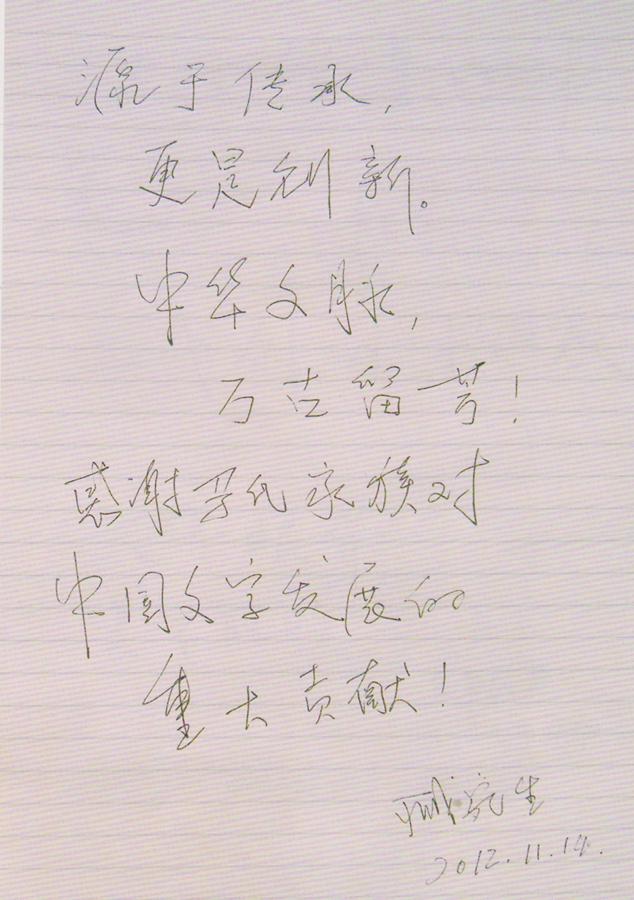 源于传承,
更是创新。
中华文脉,
万古留芳!
感谢 氏家族对
中国文字发展的
重大贡献!
臧 生
2012.11.14.